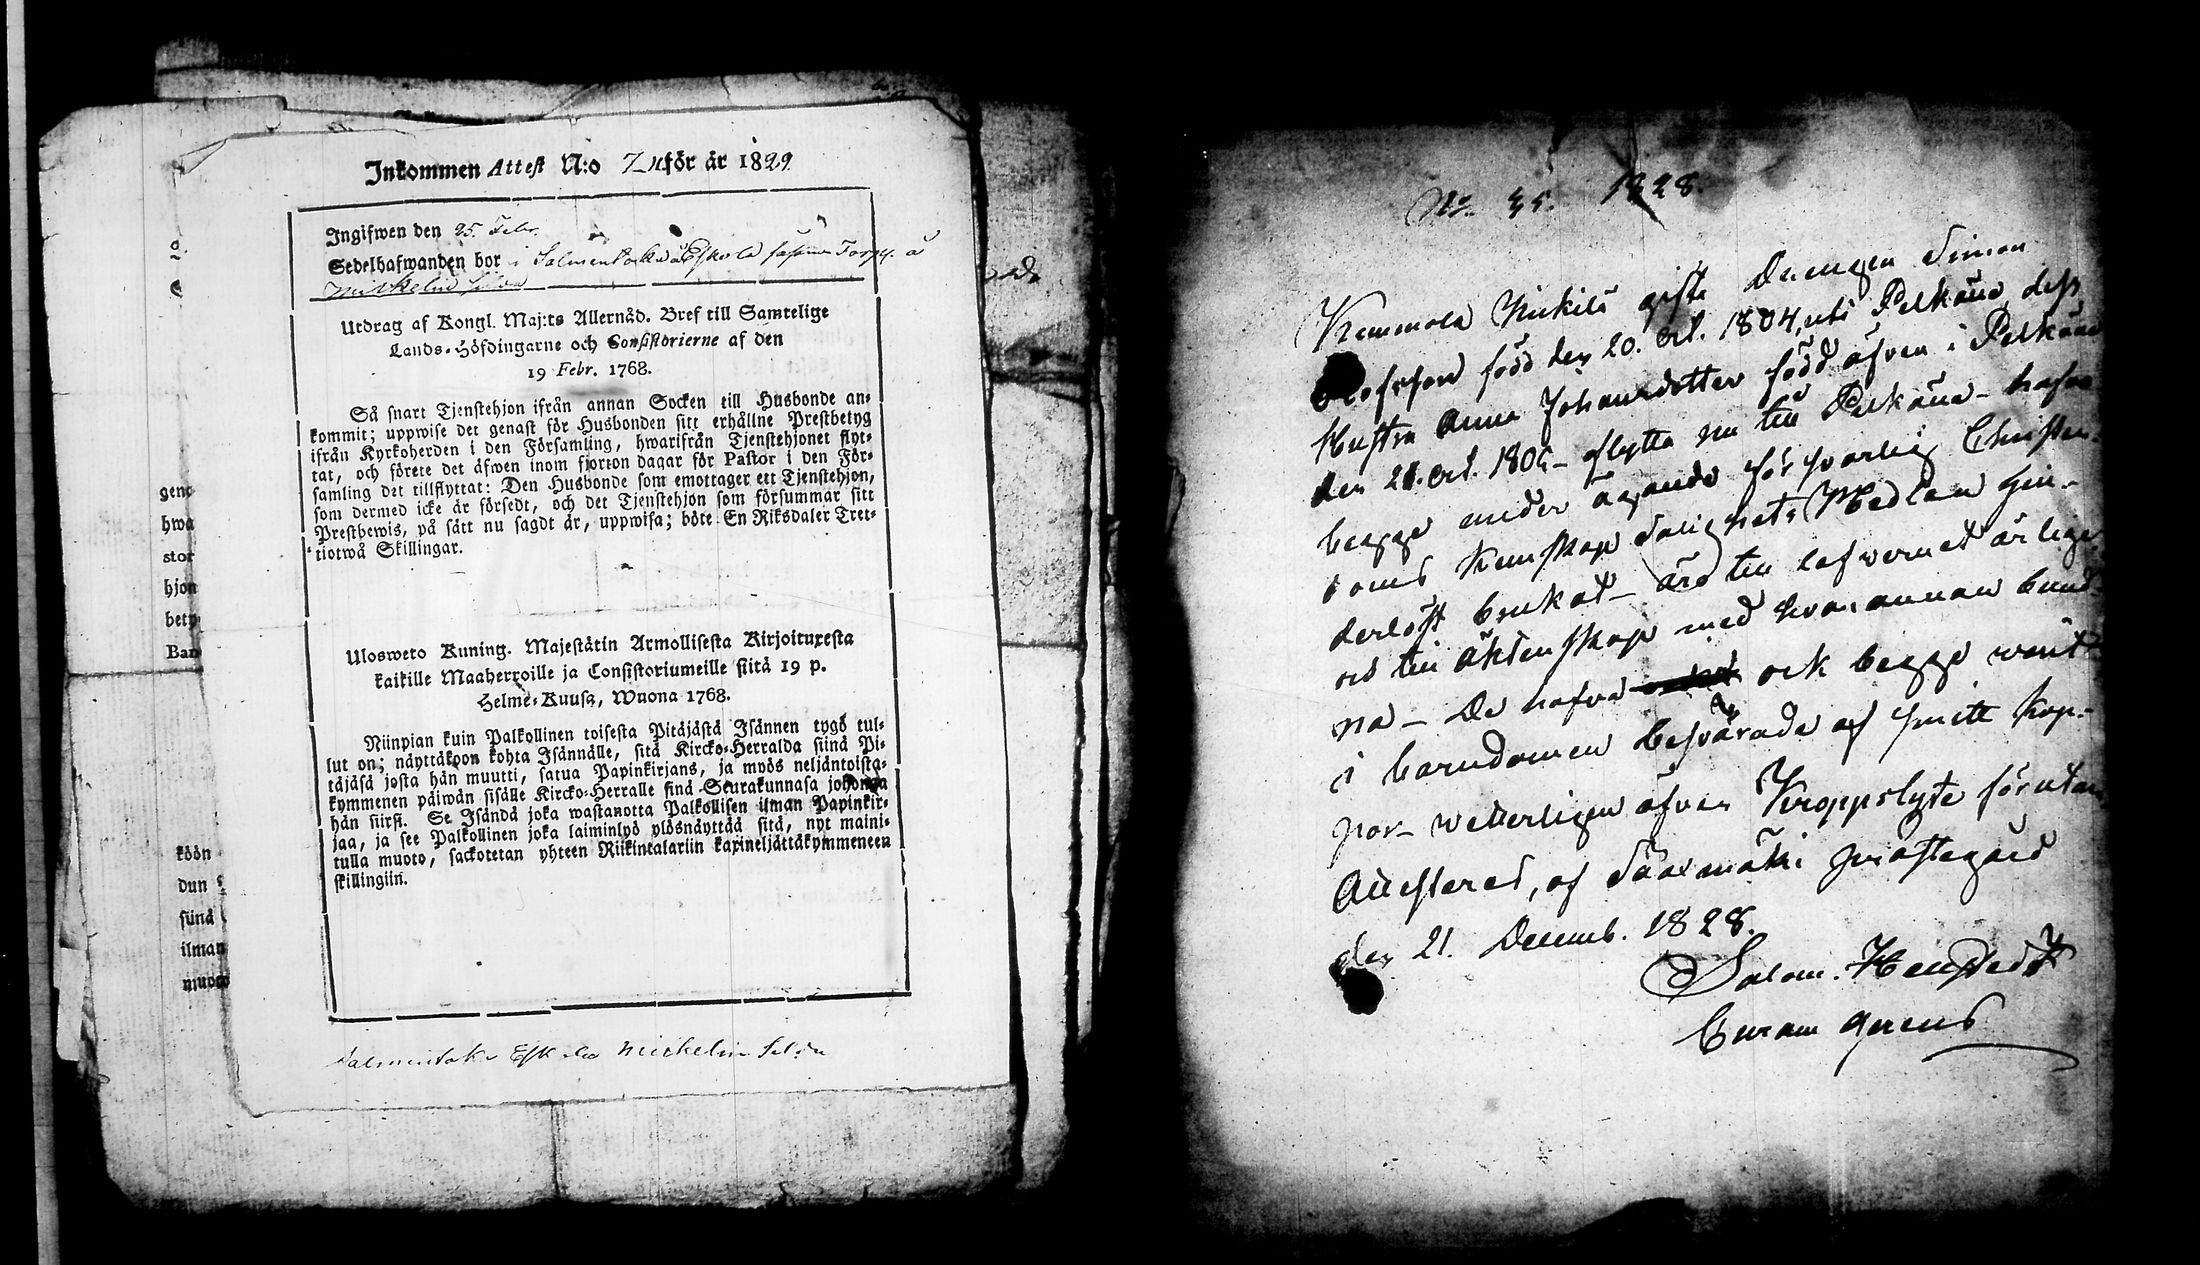 Inkommen Attest N:o 7 för år 1829
Ingifwen den 25. Febr.
Sedelhafwanden bor i Salmentaka Eskola Torp. å
Mickelin
Utdrag af Kongl. Maj:ts Allernåd. Bref till Samtelige
Lands-Höfdingarne och Consistorierne af den
19 Febr. 1768.
Så snart Tjenstehjon ifrån annan Socken till Husbonde an-
kommit; uppwise det genast för Husbonden sitt erhållne Prestbetyg
ifrån Kyrkoherden i den Församling, hwarifrån Tjenstehjonet flyt-
tat, och förete det äfwen inom fjorton dagar för Pastor i den För-
samling det tillflyttat: Den Husbonde som emottager ett Tjenstehjon,
som dermed icke är försedt, och det Tjenstehjon som försummar sitt
Prestbewis, på sätt nu sagdt är, uppwisa; böte En Riksdaler Tret-
tiotwå Skillingar.
Ulosweto Kuning. Majestätin Armollisesta Kirjoituxesta
kaikille Maaherroille ja Consistoriumeille siitä 19 p.
Helme-Kuusa, Wuona 1768.
Niinpian kuin Palkollinen toisesta Pitäjästä Isännen tygö tul-
lut on; näyttäkoon kohta Isännälle, sitä Kircko-Herralda siinä Pi-
täjäsä josta hän muutti, saatua Papinkirjans, ja myös neljäntoista-
kymmenen päiwän sisälle Kircko-Herralle siinä Seurakunnasa johonga
hän siirsi. Se Isändä joka wastanotta Palkollisen ilman Papinkir-
jaa, ja see Palkollinen joka laiminlyö ylösnäyttää sitä, nyt maini-
tulla muoto, sackotetan yhteen Riikintalariin kaxineljättäkymmeneen
skillingiin.
Salmentaka Eskola Mickelin
geno
hwa
stor
hjon
bety
Ban
köön
dun
siinä
ilman
muoto
No. 35. 1828.
Kemmola Mickilä gifte Drengen Simon
Olofsson född den 20. Oct. 1804, uti Pelkäne, dess
Hustru Anna Johansdotter född äfven i Pelkäne
den 21. Oct. 1806 - flytta nu till Pelkäne - hafva
begge under ägande försvarlig Christen-
doms Kunskap Salighets Medlen hin-
derlöst brukat - äro till lefvernet ärlige
och till äktenskap med hvarannan bund-
na - De hafva ock begge warit
i barndomen besvärade af smitt kop-
por - wetterligen äfven Kroppslyte förutan
Attesteras, af Sääxmäki prästegård
den 21. Decemb. 1828.
Salom. Henstedt
Curam gerens